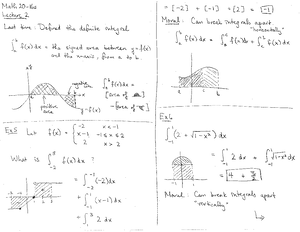 Math 20-1
Lecture 2
Last time: Defined the definite integral
∫_a^b f(x)dx = the signed area between y=f(x)
and the x-axis, from a to b.
negative area
positive area
y=f(x)
∫_a^b f(x)dx =
[area of
- [area of
Ex5 Let f(x) = { -2 x<-1
x-1 -1≤x≤2
2 x>2
What is ∫_{-2}^{3} f(x)dx ?
= ∫_{-2}^{-1} (-2)dx
+ ∫_{-1}^{2} (x-1)dx
+ ∫_{2}^{3} 2 dx
= [-2] + [-1] + [2] = -1
Moral: Can break integrals apart
"horizontally"
∫_a^c f(x)dx = ∫_a^b f(x)dx + ∫_b^c f(x)dx
Ex6
∫_{-1}^{1} (2 + √(1-x²)) dx
= ∫_{-1}^{1} 2 dx + ∫_{-1}^{1} √(1-x²) dx
= 4 + π/2
Moral: Can break integrals apart
"vertically"